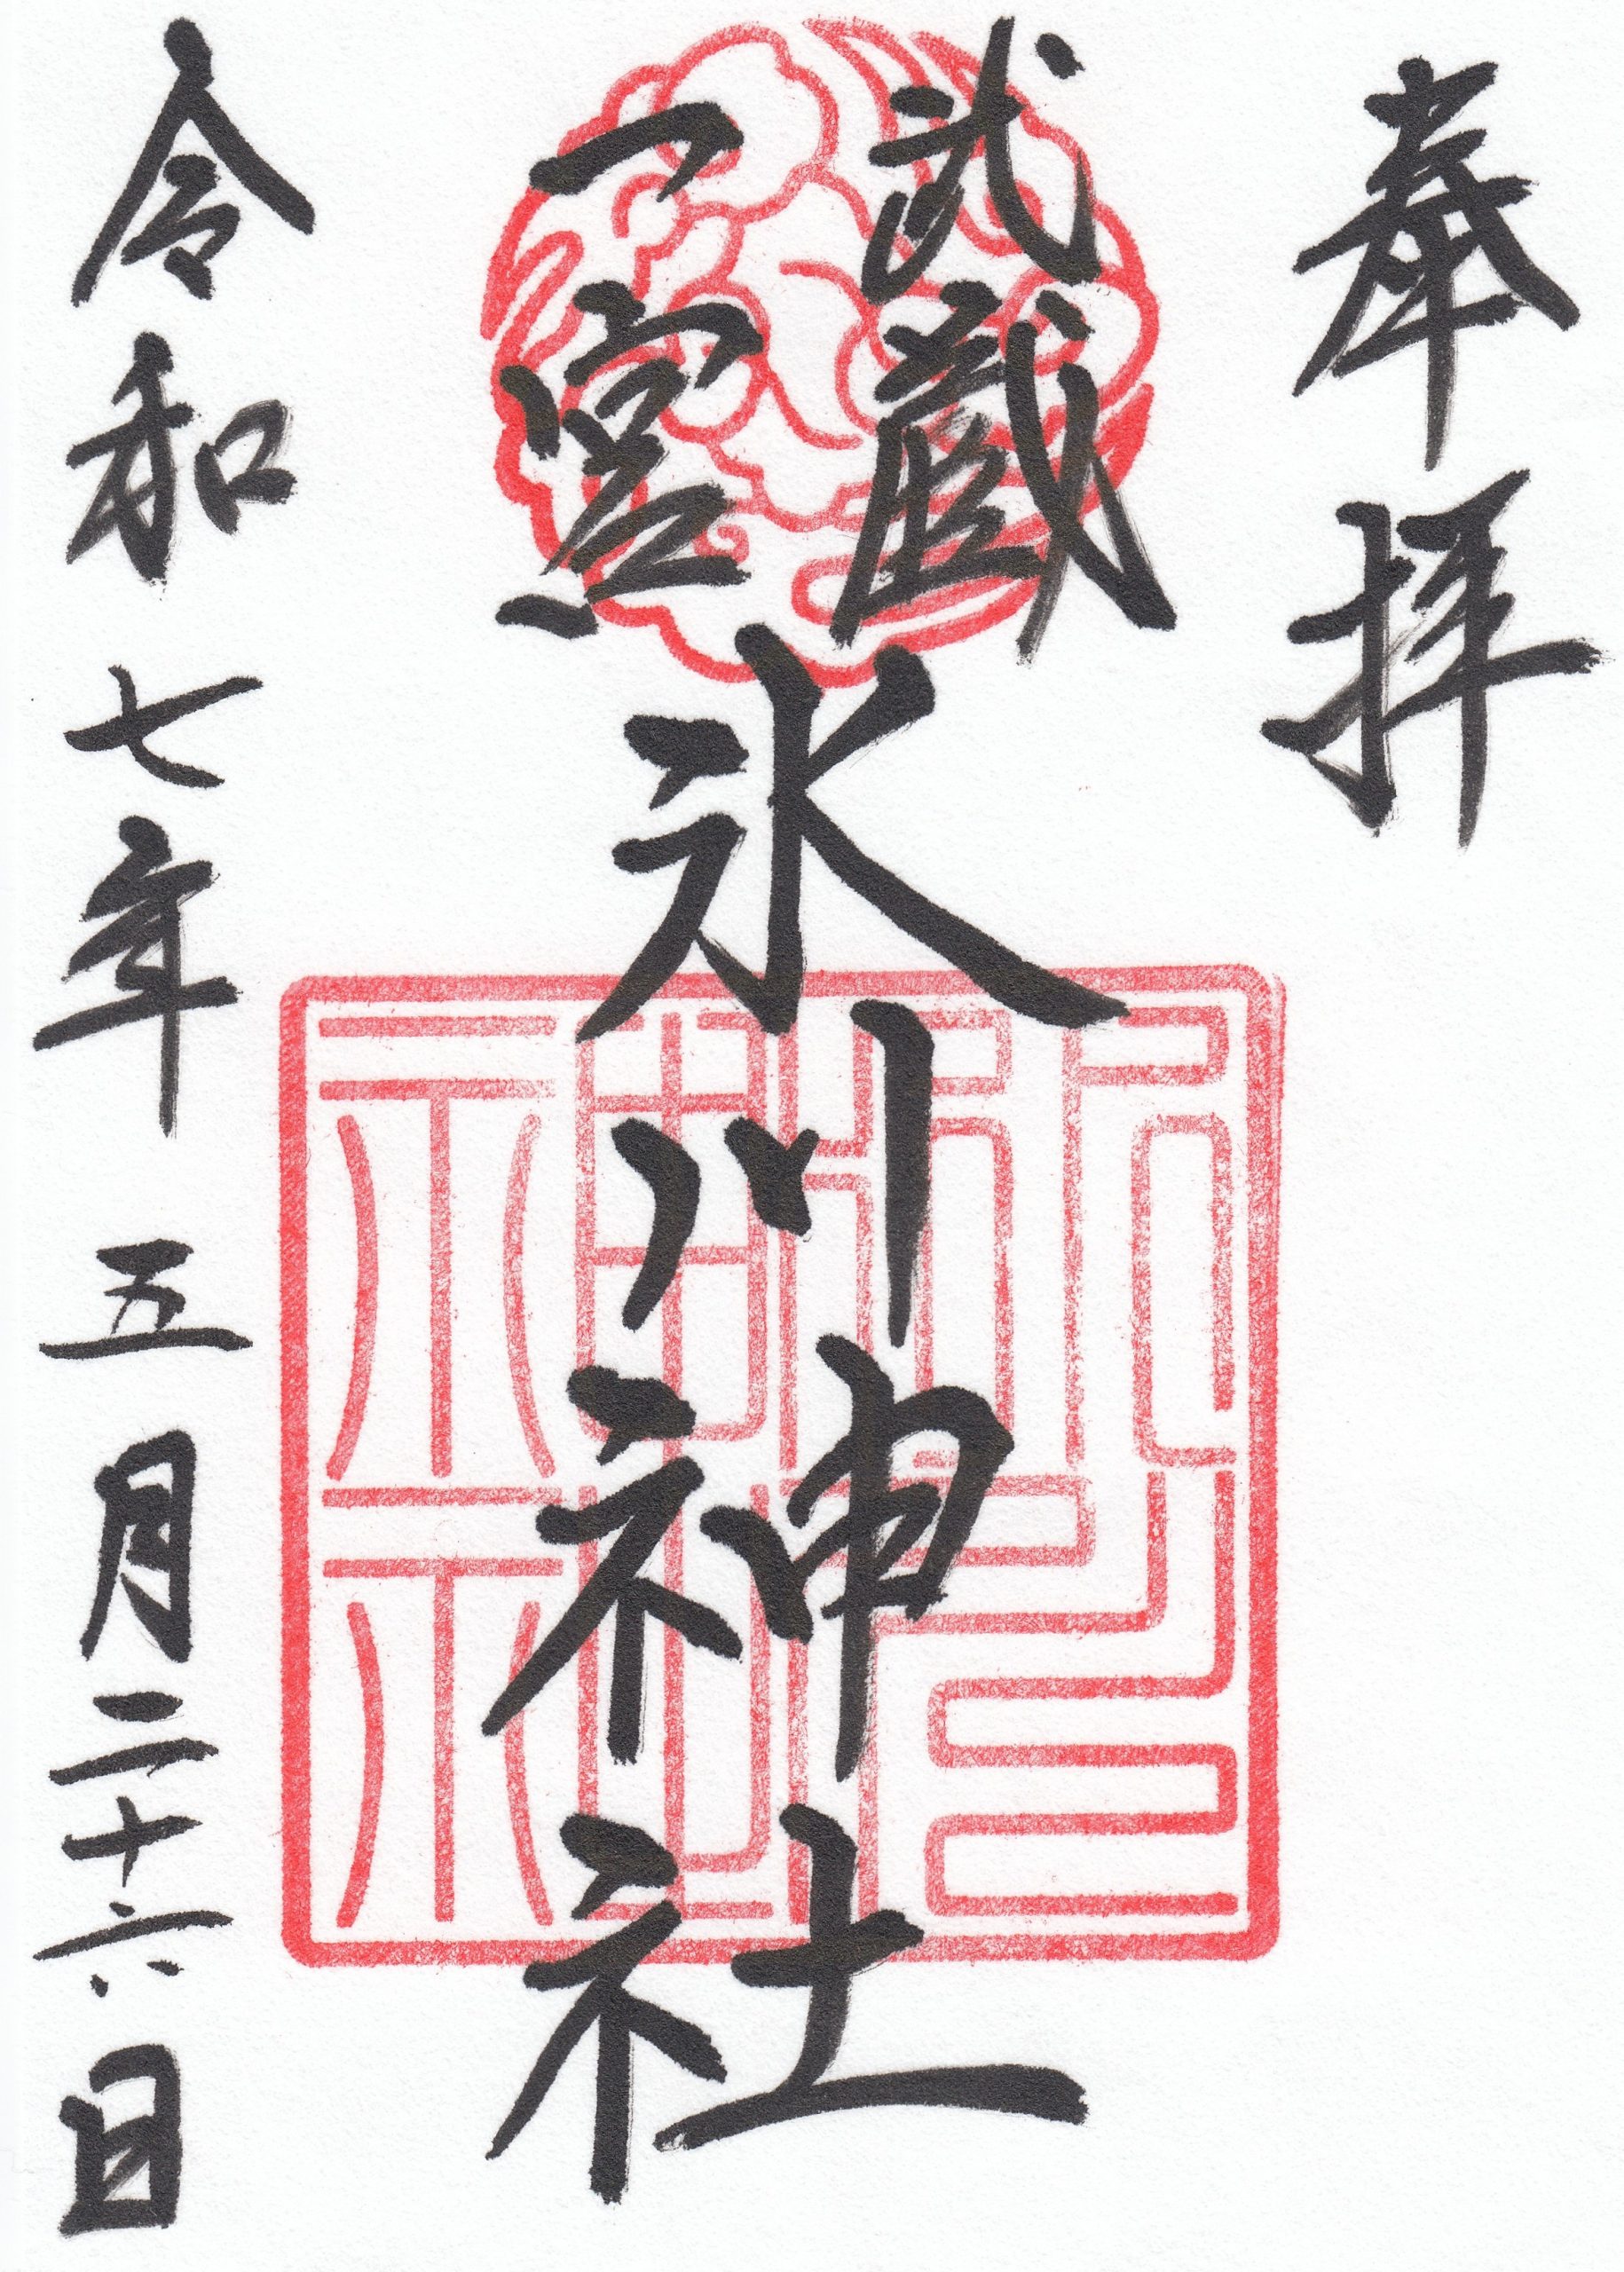 奉拝
武蔵
一宮
氷川神社
令和七年五月二十六日
氷川神社